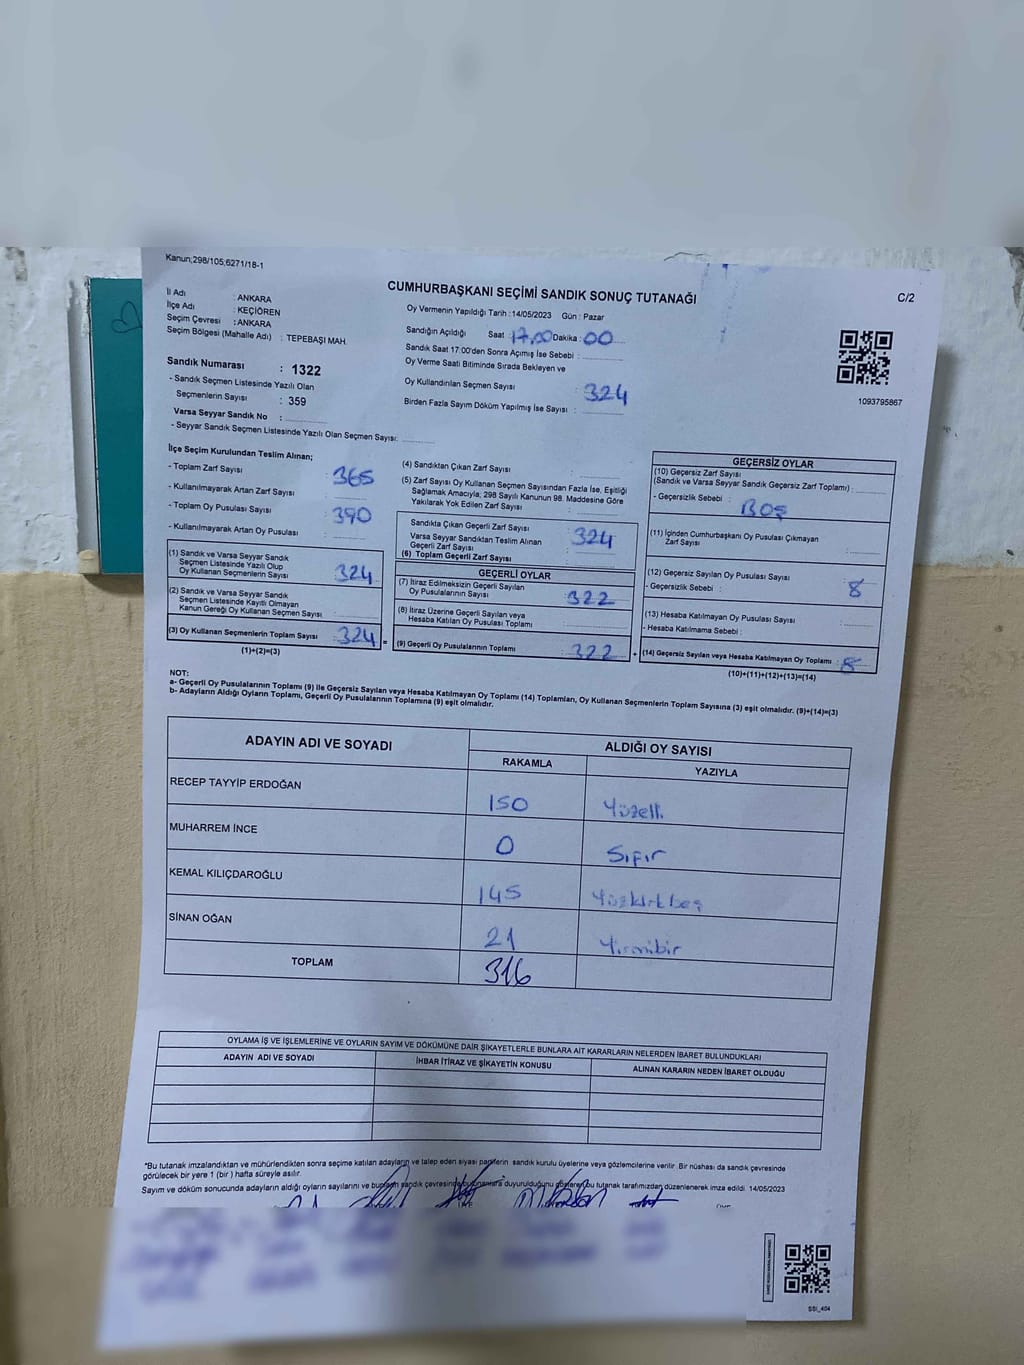 Kanun;298/105;6271/18-1
CUMHURBAŞKANI SEÇİMİ SANDIK SONUÇ TUTANAĞI
C/2
İl Adı : ANKARA
İlçe Adı : KEÇİÖREN
Seçim Çevresi : ANKARA
Seçim Bölgesi (Mahalle Adı) : TEPEBAŞI MAH.
Sandık Numarası : 1322
- Sandık Seçmen Listesinde Yazılı Olan
Seçmenlerin Sayısı : 359
Varsa Seyyar Sandık No :
- Seyyar Sandık Seçmen Listesinde Yazılı Olan Seçmen Sayısı:
Oy Vermenin Yapıldığı Tarih :14/05/2023 Gün : Pazar
Sandığın Açıldığı Saat : 17,00 Dakika : 00
Sandık Saat 17:00'den Sonra Açımış İse Sebebi :
Oy Verme Saati Bitiminde Sırada Bekleyen ve
Oy Kullandırılan Seçmen Sayısı : 324
Birden Fazla Sayım Döküm Yapılmış İse Sayısı :
1093795867
İlçe Seçim Kurulundan Teslim Alınan;
- Toplam Zarf Sayısı : 365
- Kullanılmayarak Artan Zarf Sayısı :
- Toplam Oy Pusulası Sayısı : 390
- Kullanılmayarak Artan Oy Pusulası :
(1) Sandık ve Varsa Seyyar Sandık
Seçmen Listesinde Yazılı Olup
Oy Kullanan Seçmenlerin Sayısı : 324
(2) Sandık ve Varsa Seyyar Sandık
Seçmen Listesinde Kayıtlı Olmayan
Kanun Gereği Oy Kullanan Seçmen Sayısı :
(3) Oy Kullanan Seçmenlerin Toplam Sayısı : 324 =
(1)+(2)=(3)
(4) Sandıktan Çıkan Zarf Sayısı :
(5) Zarf Sayısı Oy Kullanan Seçmen Sayısından Fazla İse, Eşitliği
Sağlamak Amacıyla, 298 Sayılı Kanunun 98. Maddesine Göre
Yakılarak Yok Edilen Zarf Sayısı :
Sandıkta Çıkan Geçerli Zarf Sayısı : 324
Varsa Seyyar Sandıktan Teslim Alınan
Geçerli Zarf Sayısı :
(6) Toplam Geçerli Zarf Sayısı :
GEÇERLİ OYLAR
(7) İtiraz Edilmeksizin Geçerli Sayılan
Oy Pusulalarının Sayısı : 322
(8) İtiraz Üzerine Geçerli Sayılan veya
Hesaba Katılan Oy Pusulası Toplamı :
(9) Geçerli Oy Pusulalarının Toplamı : 322 +
GEÇERSİZ OYLAR
(10) Geçersiz Zarf Sayısı
(Sandık ve Varsa Seyyar Sandık Geçersiz Zarf Toplamı) :
- Geçersizlik Sebebi : BOŞ
(11) İçinden Cumhurbaşkanı Oy Pusulası Çıkmayan
Zarf Sayısı :
(12) Geçersiz Sayılan Oy Pusulası Sayısı : 8
- Geçersizlik Sebebi :
(13) Hesaba Katılmayan Oy Pusulası Sayısı :
- Hesaba Katılmama Sebebi :
(14) Geçersiz Sayılan veya Hesaba Katılmayan Oy Toplamı : 8
(10)+(11)+(12)+(13)=(14)
NOT:
a- Geçerli Oy Pusulalarının Toplamı (9) ile Geçersiz Sayılan veya Hesaba Katılmayan Oy Toplamı (14) Toplamları, Oy Kullanan Seçmenlerin Toplam Sayısına (3) eşit olmalıdır. (9)+(14)=(3)
b- Adayların Aldığı Oyların Toplamı, Geçerli Oy Pusulalarının Toplamına (9) eşit olmalıdır.
ADAYIN ADI VE SOYADI ALDIĞI OY SAYISI
RAKAMLA YAZIYLA
RECEP TAYYİP ERDOĞAN 150 Yüzelli
MUHARREM İNCE 0 Sıfır
KEMAL KILIÇDAROĞLU 145 Yüzkırkbeş
SİNAN OĞAN 21 Yirmibir
TOPLAM 316
OYLAMA İŞ VE İŞLEMLERİNE VE OYLARIN SAYIM VE DÖKÜMÜNE DAİR ŞİKAYETLERLE BUNLARA AİT KARARLARIN NELERDEN İBARET BULUNDUKLARI
ADAYIN ADI VE SOYADI İHBAR İTİRAZ VE ŞİKAYETİN KONUSU ALINAN KARARIN NEDEN İBARET OLDUĞU
*Bu tutanak imzalandıktan ve mühürlendikten sonra seçime katılan adayların ve talep eden siyasi partilerin sandık kurulu üyelerine veya gözlemcilerine verilir. Bir nüshası da sandık çevresinde
görülecek bir yere 1 (bir ) hafta süreyle asılır.
Sayım ve döküm sonucunda adayların aldığı oyların sayılarını ve bunların sandık çevresinde bulunanlara duyurulduğunu gösteren bu tutanak tarafımızdan düzenlenerek imza edildi. 14/05/2023
SSI_404